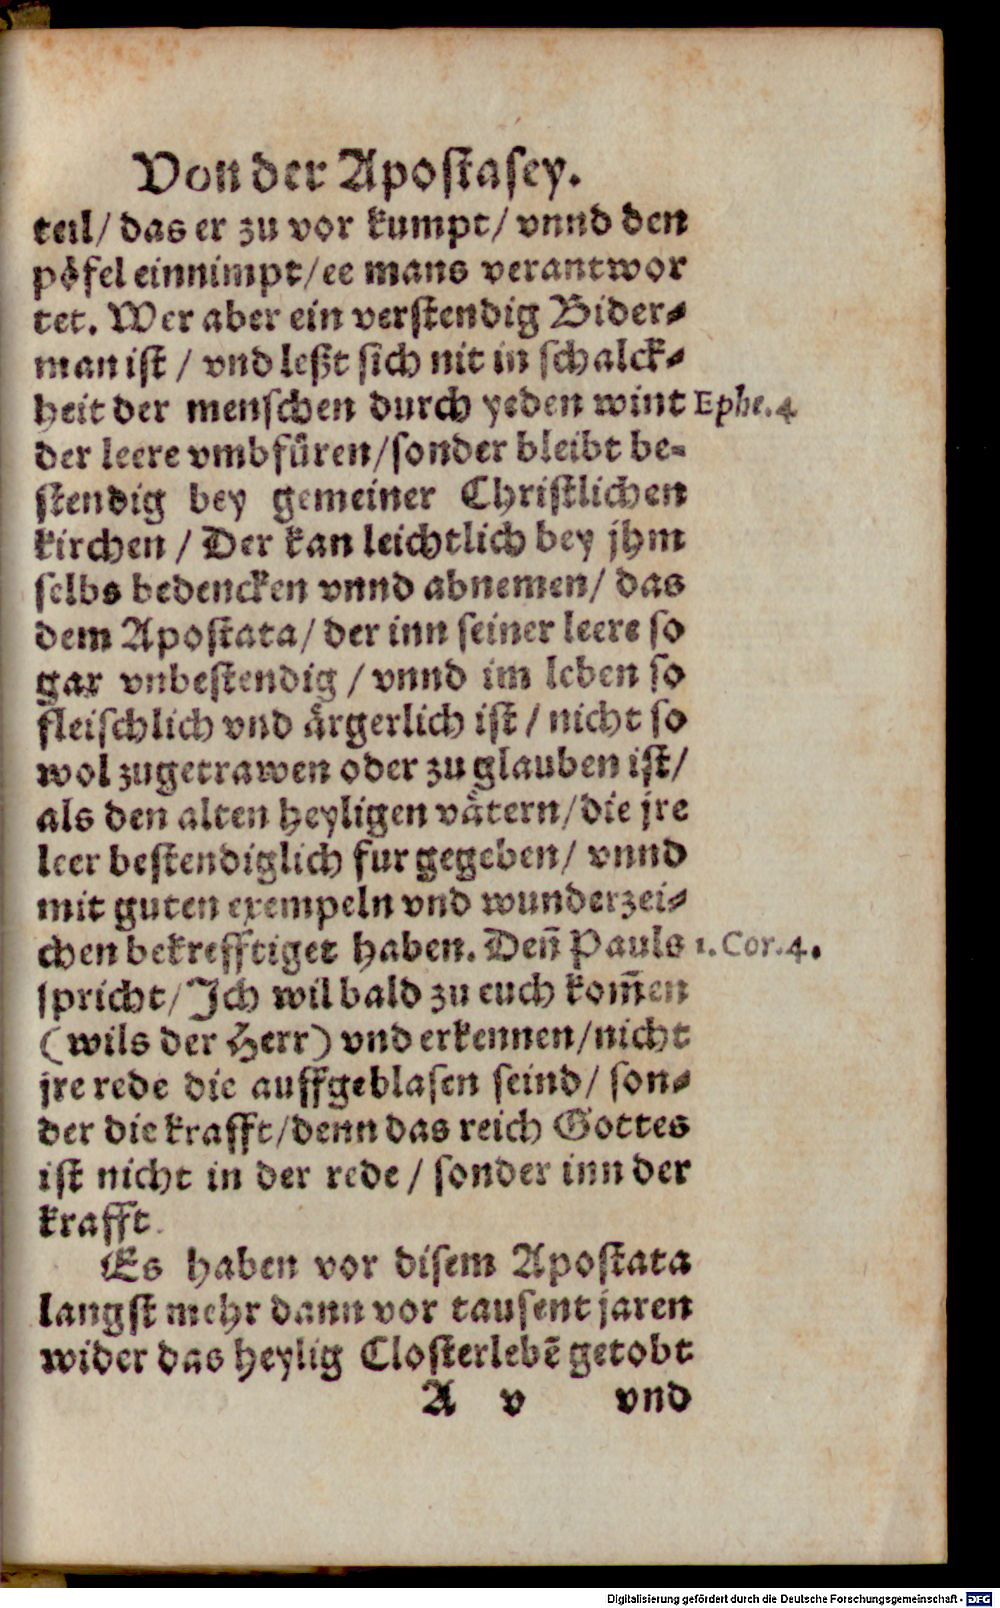 Von der Apostasey.
teil/ das er zu vor kumpt/ vnnd den
poͤfel einnimpt/ee mans verantwor
tet. Wer aber ein verstendig Bider⸗
man ist / vnd leßt sich nit in schalck⸗
heit der menschen durch yeden wint Ephe. 4
der leere vmbfuͤren/sonder bleibt be⸗
stendig bey gemeiner Christlichen
kirchen / Der kan leichtlich bey jhm
selbs bedencken vnnd abnemen/ das
dem Apostata/ der inn seiner leere so
gar vnbestendig / vnnd im leben so
fleischlich vnd aͤrgerlich ist / nicht so
wol zugetrawen oder zu glauben ist/
als den alten heyligen vaͤtern/die jre
leer bestendiglich fur gegeben/ vnnd
mit guten exempeln vnd wunderzei⸗
chen bekrefftiget haben. Deñ Pauls 1. Cor. 4.
spricht/ Ich wil bald zu euch kom̃en
(wils der Herr) vnd erkennen/nicht
jre rede die auffgeblasen seind/ son⸗
der die krafft/denn das reich Gottes
ist nicht in der rede / sonder inn der
krafft.
Es haben vor disem Apostata
langst mehr dann vor tausent jaren
wider das heylig Closterlebẽ getobt
A v vnd
Digitalisierung gefördert durch die Deutsche Forschungsgemeinschaft - DFG